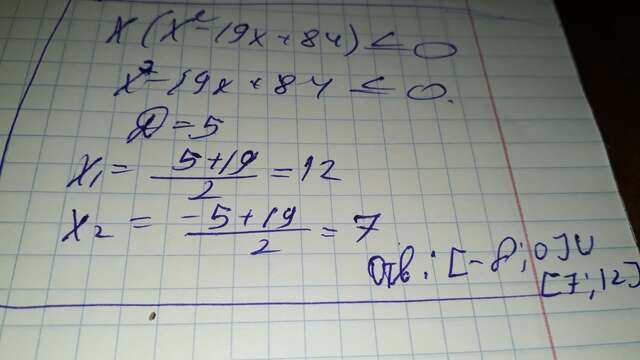 x(x²-19x+84)≤0
x²-19x+84≤0.
D=5
x₁=(5+19)/2=12
x₂=(-5+19)/2=7
Отв: [-8;0]U
[7;12]